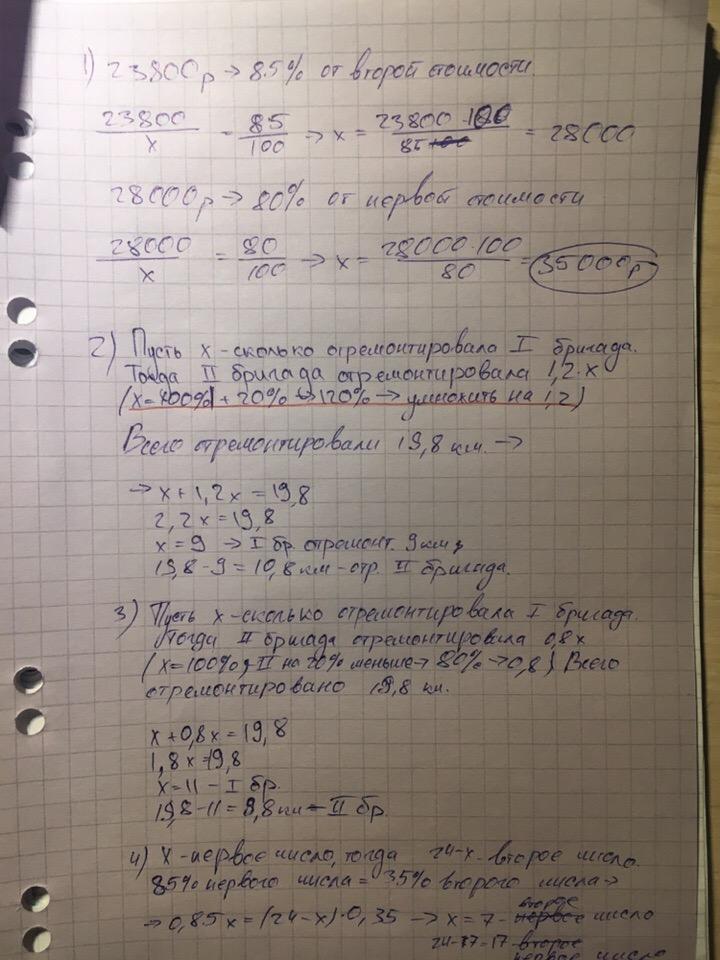 1) 23800р → 85% от второй стоимости.
23800/x = 85/100 → x = 23800·100/85 = 28000
28000р → 80% от первой стоимости
28000/x = 80/100 → x = 28000·100/80 = 35000р
2) Пусть x - сколько отремонтировала I бригада.
Тогда II бригада отремонтировала 1,2·x
(x=100% + 20% → 120% → умножить на 1,2)
Всего отремонтировали 19,8 км. →
→ x+1,2x = 19,8
2,2x = 19,8
x = 9 → I бр. отремонт. 9 км,
19,8-9 = 10,8 км - отр. II бригада.
3) Пусть x - сколько отремонтировала I бригада.
Тогда II бригада отремонтировала 0,8x
(x=100%, II на 20% меньше → 80% → 0,8) Всего
отремонтировано 19,8 км.
x+0,8x = 19,8
1,8x = 19,8
x = 11 - I бр.
19,8-11 = 8,8 км - II бр.
4) x - первое число, тогда 24-x - второе число.
85% первого числа = 35% второго числа →
→ 0,85x = (24-x)·0,35 → x = 7 - первое второе число
24-7=17 - второе
первое число